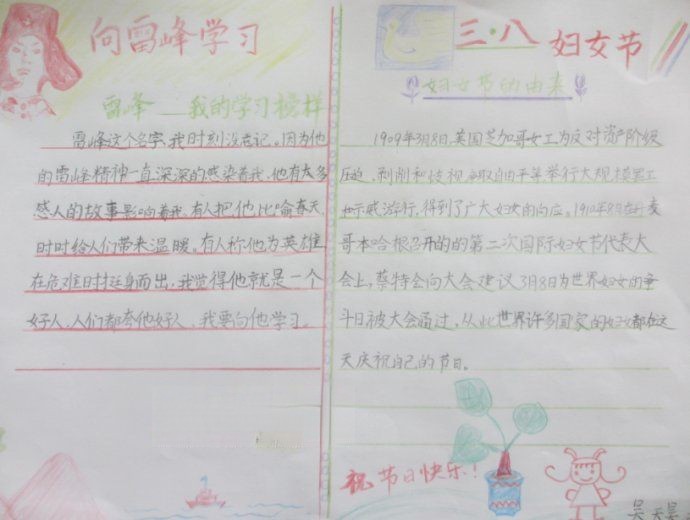 向雷峰学习
雷峰——我的学习榜样
雷峰这个名字,我时刻没忘记。因为他
的雷峰精神一直深深的感染着我,他有太多
感人的故事影响着我。有人把他比喻春天,
时时给人们带来温暖。有人称他为英雄
在危难时挺身而出,我觉得他就是一个
好人,人们都夸他好人,我要向他学习。
三·八 妇女节
妇女节的由来
1909年3月8日,美国芝加哥女工为反对资产阶级
压迫、剥削和歧视,争取自由平等举行大规模罢工
和示威游行,得到了广大妇女的响应。1910年8月在丹麦
哥本哈根召开的的第二次国际妇女节代表大
会上,蔡特会向大会建议3月8日为世界妇女的争
斗日被大会通过,从此世界许多国家的妇女都在这
天庆祝自己的节日。
祝节日快乐!
吴天昊